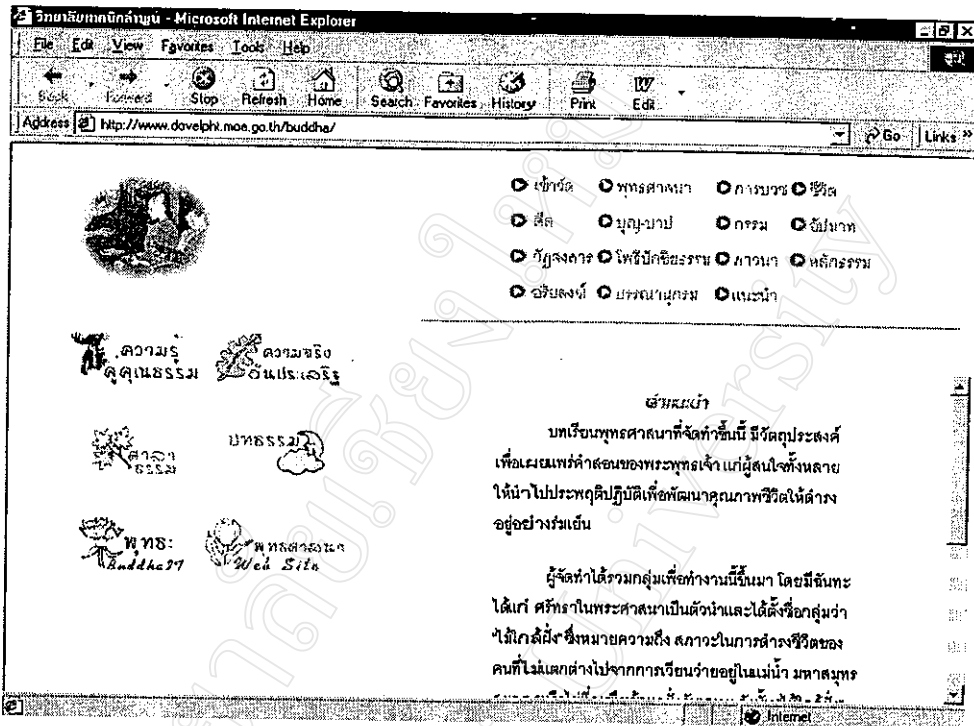 วิทยาลัยเทคนิคลำพูน - Microsoft Internet Explorer
File Edit View Favorites Tools Help
Back Forward Stop Refresh Home Search Favorites History Print Edit
Address http://www.dovelpht.moe.go.th/buddha/ Go Links »
เข้าวัด พุทธศาสนา การบวช ชีวิต
ศีล บุญ-บาป กรรม อัปมาท
วัฏสงสาร โพธิปักขิยธรรม ภาวนา หลักธรรม
อริยสงฆ์ บรรณานุกรม แนะนำ
ความรู้ ความจริง
คู่คุณธรรม อันประเสริฐ
ศาลา บทธรรม
ธรรม
พุทธะ พุทธศาสนา
Buddha27 Web Site
คำแนะนำ
บทเรียนพุทธศาสนาที่จัดทำขึ้นนี้ มีวัตถุประสงค์
เพื่อเผยแพร่คำสอนของพระพุทธเจ้า แก่ผู้สนใจทั้งหลาย
ให้นำไปประพฤติปฏิบัติเพื่อพัฒนาคุณภาพชีวิตให้ดำรง
อยู่อย่างร่มเย็น
ผู้จัดทำได้รวมกลุ่มเพื่อทำงานนี้ขึ้นมา โดยมีฉันทะ
ได้แก่ ศรัทธาในพระศาสนาเป็นตัวนำและได้ตั้งชื่อกลุ่มว่า
"ไม้ใกล้ฝั่ง" ซึ่งหมายความถึง สภาวะในการดำรงชีวิตของ
คนที่ไม่แตกต่างไปจากการเวียนว่ายอยู่ในแม่น้ำ มหาสมุทร
Internet
มหาวิทยาลัยเชียงใหม่
University